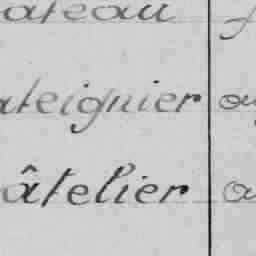 ateau
ateignier
âtelier